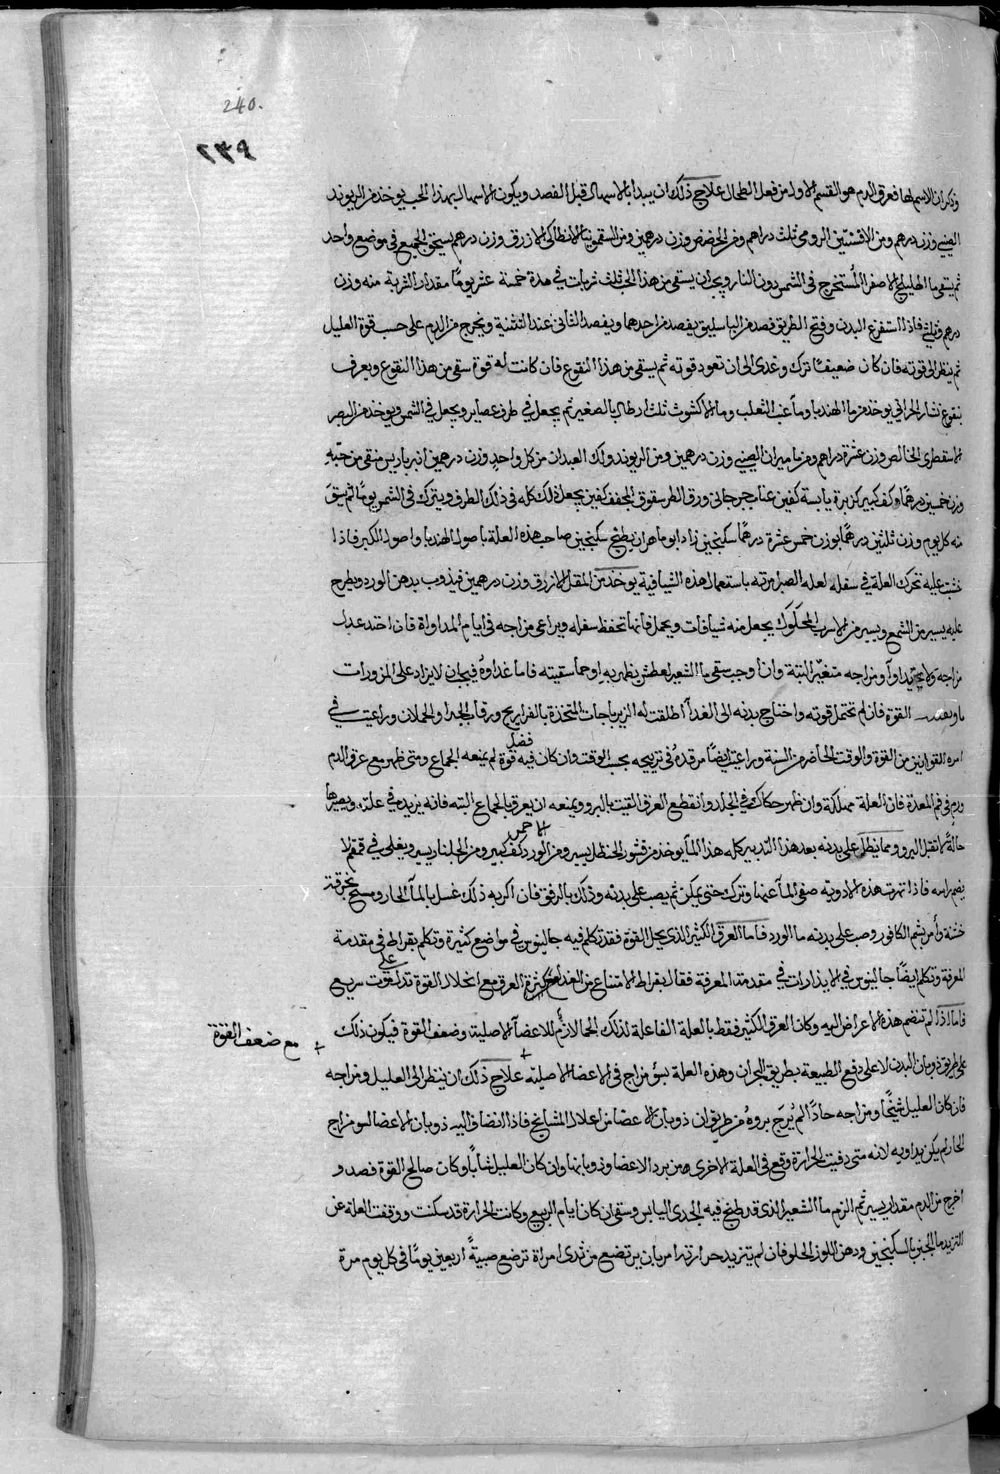 240.
٢٣٩
وذكر ان الاسم لها فعرق الدم هو القسم الاول من فعل الطحال علاج ذلك ان يبدا بالاسهال قبل الفصد ويكون الاسهال بهذا الحب يوخذ من الريوند
الصيني وزن درهم ومن الافسنتين الرومي ثلث دراهم ومن الحضض وزن درهمين ومن السقمونيا الانطاكي الازرق وزن درهم يسحق الجميع في موضع واحد
ثم يسقى ما الهليلج الاصفر المستخرج في الشمس دون النار ويجب ان يسقى من هذا الحب ثلث شربات في مدة خمسة عشر يوما مقدار الشربة منه وزن
درهم وثلثي فاذا استفرغ البدن وفتح الطريق فصد من الباسليق يفصد من احدهما ويفصد الثاني عند التثنية ويخرج من الدم على حسب قوة العليل
ثم ينظر الى قوته فان كان ضعيفا ترك وغدى الى ان تعود قوته ثم يسقى من هذا النقوع فان كانت له قوة سقى من هذا النقوع ويعرف
بنقوع الحراني يوخذ من ما الهندبا وما عنب الثعلب وما الاكشوث ثلث ارطال بالصغير ثم يجعل في طرف عصاير ويجعل في الشمس ويوخذ من الصبر
الاسقطرى الخالص وزن عشرة دراهم ومن ماميران الصيني وزن درهمين ومن الريوند ولك العيدان من كل واحد وزن درهمين انبرباريس منقى من حبه
وزن خمسين درهما وكف كبير كزبرة يابسة كفين عناب جرجاني ورق الطرسقوق المجفف كفين يجعل ذلك كله في ذلك الطرف ويترك في الشمس يوما ثم يسقى
منه كل يوم وزن ثلثين درهما بوزن خمس عشرة درهما سكنجبين زاد ابو ماهر ان يطبخ سكنجبين صاحب هذه العلة باصول الهندبا واصول الكبر فاذا
خشيت عليه تحرك العلة في سفله لعلة الصبر امرته باستعمال هذه الشيافة يوخذ من المقل الازرق وزن درهمين فيذوب بدهن الورد ويطرح
عليه يسير من الشمع ويسير من الاسرب المحكوك يجعل منه شيافات ويحمل فانها تحفظ سفله ويراعى مزاجه في ايام المداواة فان احتد عدل
مزاجه ولا يداوا ومزاجه متغير البتة وان اوجب سقى ما الشعير لعطش يظهر به او حما سقيته فاما غداوه فيجب ان لا يزاد على المزورات
ما القوة فان لم تحتمل قوته واحتاج بدنه الى الغدا اطلقت له الزيرباجات المتخذة بالفراريج ورقاب الجدا والحملان وراعيت في
امره القوانين من القوة والوقت الحاضر من السنة وراعيت ايضا مرقده في ترييحه بحسب الوقت وان كان فيه فضل قوة لم يمنعه الجماع ومتى ظهر مع عرق الدم
ورم في فم المعدة فان العلة مهلكة وان ظهر حكاك في الجلد وانقطع العرق القيت بالبرو ويمنعه ان يعرق بالجماع البتة فانه يزيده في علته ويصيرها
حالة لا تقبل البرو ومما ينطل على بدنه بعد هذا التدبير كله هذا الما يوخذ من قشور الحنظل يسير ومن الورد الاحمر كف كبير ومن الجلنار يسير ويغلى في قمقم لا
يضم راسه فاذا تهرت هذه الادوية صفى الما عنها وترك حتى يمكن ثم يصب على بدنه وذلك بالرفق فان اكربه ذلك غسل بالما الحار ومسح بخرقة
خشنة وامر بشم الكافور وصب على بدنه ما الورد فاما العرق الكثير الذي يحل القوة فقد تكلم فيه جالينوس في مواضع كثيرة وتكلم بقراط في مقدمة
المعرفة وتكلم ايضا جالينوس في الانذارات في مقدمة المعرفة فقال بقراط الامتناع من الغدا مع كثرة العرق مع انحلال القوة تدل على موت سريع
فاما اذا لم تنضم هذه الاعراض اليه وكان العرق الكثير فقط بالعلة الفاعلة لذلك انحلال للاعضا الاصلية وضعف القوة فيكون ذلك
مع ضعف القوة
على طريق ذوبان البدن لا على دفع الطبيعة بطريق البحران وهذه العلة بسو مزاج في الاعضا الاصلية علاج ذلك ان ينظر الى العليل ومزاجه
فان كان العليل شيخا ومزاجه حادا لم يرج بروه من طريق ان ذوبان الاعضا من اعلال المشايخ فاذا انضاف اليه ذوبان الاعضا لسو مزاج
الحار لم يكن يداويه لانه متى دفيت الحرارة وقع في العلة الاخرى من برد الاعضا وذوبانها وان كان العليل شابا وكان صالح القوة فصد و
اخرج من الدم مقدار يسير ثم الزم ما الشعير الذي قد طبخ فيه الجدى اليابس وسقى ان كان ايام الربيع وكانت الحرارة قد سكنت ووقفت العلة عن
التزيد ما الجبن بالسكنجبين ودهن اللوز الحلو فان لم تزيد حرارته امر بان يرتضع من ثدى امراة ترضع صبية اربعين يوما في كل يوم مرة